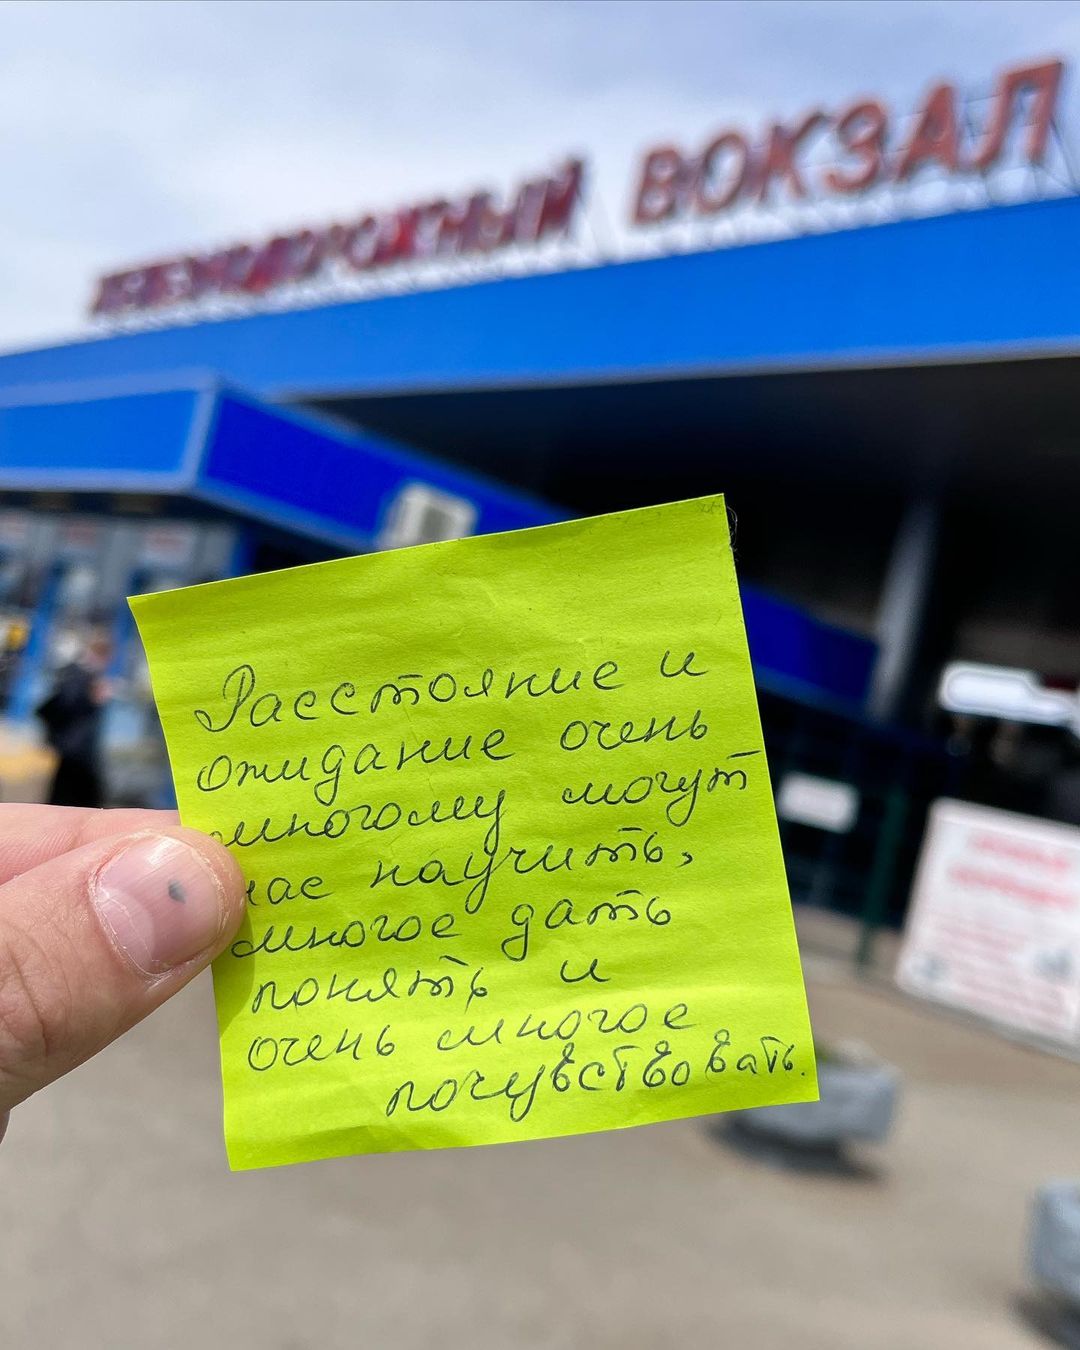 ЖЕЛЕЗНОДОРОЖНЫЙ ВОКЗАЛ
Расстояние и
ожидание очень
многому могут
нас научить,
многое дать
понять и
очень многое
почувствовать.